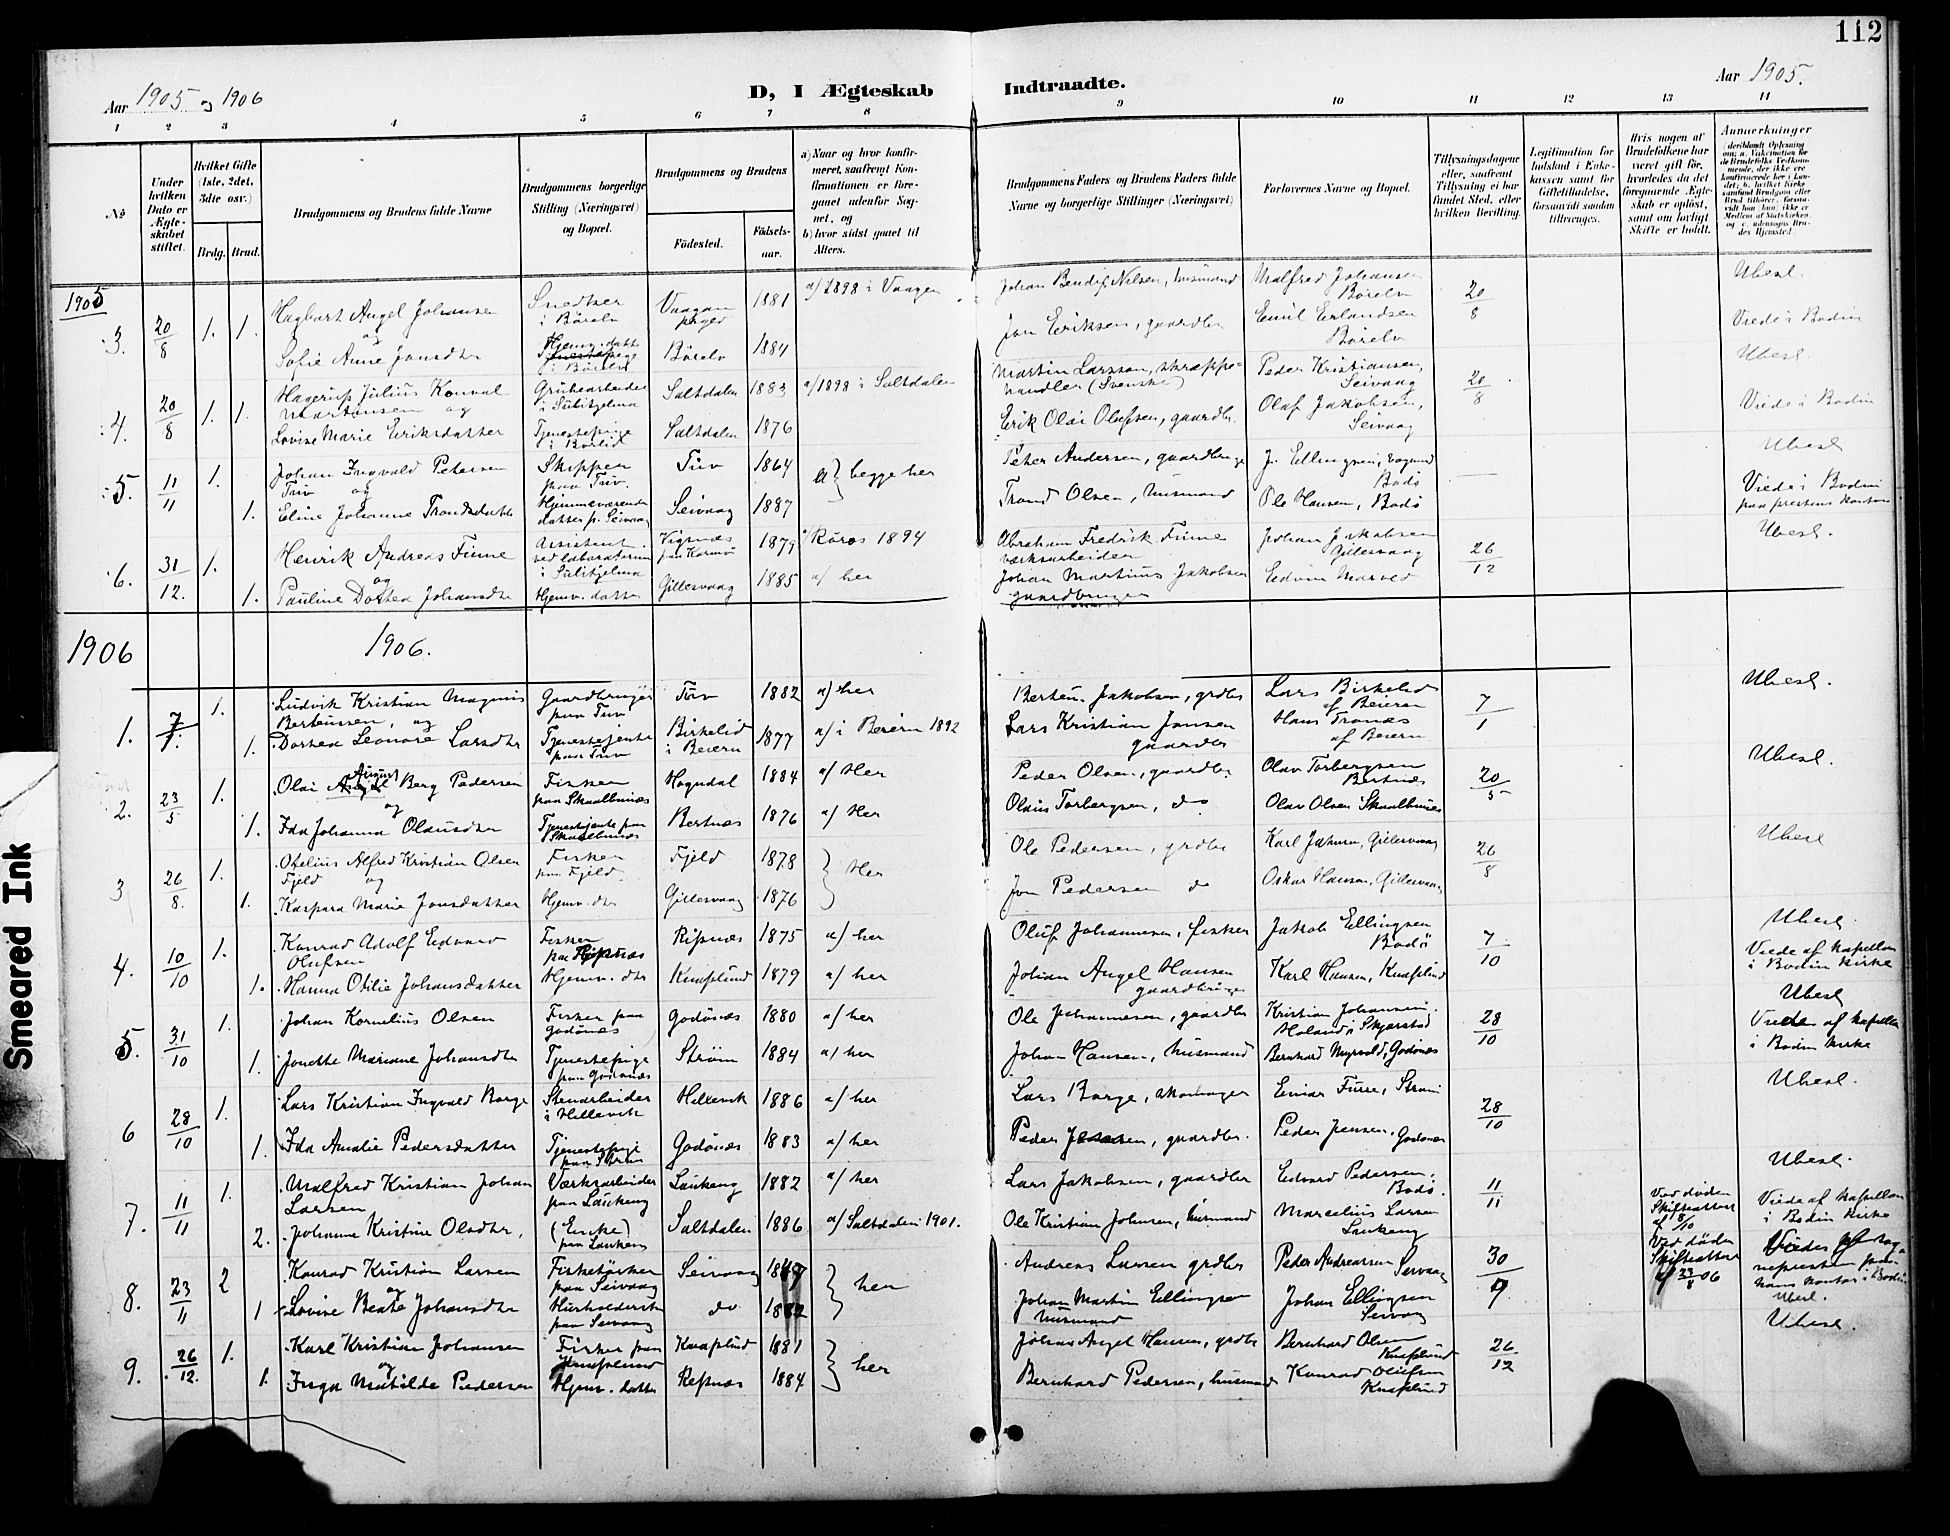 112
Aar 1905 og 1906
D, I Ægteskab Indtraadte.
Aar 1905.
1 2 3 4 5 6 7 8 9 10 11 12 13 14
No
Under hvilken Dato er Ægteskabet stiftet.
Hvilket Gifte (1ste, 2det, 3die osv.)
Brdg. Brud.
Brudgommens og Brudens fulde Navne
Brudgommens borgerlige Stilling (Næringsvei) og Bopæl.
Brudgommens og Brudens
Födested.
Födselsaar.
a) Naar og hvor konfirmeret, saafremt Konfirmationen er foregaaet udenfor Sognet, og
b) hvor sidst gaaet til Alters.
Brudgommens Faders og Brudens Faders fulde Navne og borgerlige Stillinger (Næringsvei)
Forlovernes Navne og Bopæl.
Tillysningsdagene eller, saafremt Tillysning ei har fundet Sted, efter hvilken Bevilling.
Legitimation for Indskud i Enkekassen samt for Giftetilladelse, forsaavidt saadan tiltrænges.
Hvis nogen af Brudefolkene har været gift för, hvorledes da det foregaaende Ægteskab er oplöst, samt om lovligt Skifte er holdt.
Anmerkninger
1905
3. 20/8 1. 1. Hagbart Angel Johansen og Snedker i Börelv Vaagan 1881 a/ 1898 i Vaagen Johan Bendig Nilsen, husmand Malfred Johansen Börelv 20/8 Ubesl.
Sofie Anne Jonsdtr Hjemv. datter i Börelv Börelv 1884 Jon Eriksen, gaardbr Emil Erlandsen Börelv Viede i Bodin
4. 20/8 1. 1. Hagerup Julius Konval Martensen og Grubearbeider i Sulitjelma Saltdalen 1883 a/ 1898 i Saltdalen Martin Larsson, skræppehandler (Svenske) Peder Kristiansen, Seivaag 20/8 Ubesl.
Lovise Marie Eriksdatter Tjenestepige Saltdalen 1876 Erik Olai Olufsen, gaardbr. Olaf Jakobsen, Seivaag Viede i Bodin
5. 11/11 1. Johan Ingvald Petersen Tuv og Skipper paa Tuv. Tuv 1864 a} begge her Peter Andersen, gaardbruger J. Ellingsen, Bodö — Ubesl
1. Eline Johanne Trondsdatter Hjemmeværende datter p. Seivaag Seivaag 1887 Trond Olsen, husmand Ole Hansen, Bodö Viede i Bodin paa prestens kontor
6. 31/12. 1. Henrik Andreas Finne og Assistent ved laboratorium i Sulitjelma Vigsnæs paa Karmö 1879 a/ Röros 1894 Abraham Fredrik Finne værksarbeider Johan Jakobsen Gillesvaag 26/12 Ubesl.
1. Pauline Dortea Johansdtr Hjemv. datter Gillesvaag 1885 a/ her Johan Martinus Jakobsen gaardbruger Edvin Marved
1906 1906.
1. 7/1. 1. Ludvik Kristian Magnus Berteussen, og Gaardbruger paa Tuv Tuv 1882 a/ her Berteu. Jakobsen, grdbr Lars Birkelid af Beieren 7/1 Ubesl.
1. Dortea Leonore Larsdtr Tjenestejente paa Tuv Birkelid i Beiern 1877 a/ i Beiern 1892 Lars Kristian Jonsen gaardbr Hans Tranæs af Beiern
2. 23/5 1. Olai August Berg Pedersen og Fisker paa Skaalbunæs Hogndal 1884 a/ Her Peder Olsen, gaardbr Olav Torbergsen Bertnæs 20/5 Ubesl.
1. Ida Johanna Olausdtr Tjenestejente paa Skaalbunæs Bertnæs 1876 a/ Her Olaus Torbergsen, do Olav Olsen i Skaalbunæs
3 26/8. 1. Otelius Alfred Kristian Olsen Fjeld og Fisker paa Fjeld. Fjeld 1878 } Her Ole Pedersen, grdbr Karl Johnsen, Gillesvaag 26/8 Ubesl
1. Kaspara Marie Jonsdatter Hjemv. dtr Gillesvaag 1876 Jon Pedersen do Oskar Hansen, Gillesvaag
4. 10/10 1. Konrad Adolf Edvard Olufsen Fisker paa Ripnæs Ripnæs 1875 a/ her Oluf Johannesen, fisker Jakob Ellingsen Bodö 7/10 Ubesl.
1. Hanna Otilie Johansdatter Hjemv. dtr Knaplund 1879 a/ her Johan Angel Hansen gaardbruger Karl Hansen, Knaplund Viede af kapellan i Bodin kirke
5. 31/10 1. Johan Kornelius Olsen Fisker paa Godönæs Godönæs 1880 a/ her Ole Johannesen, gaardbr Kristian Johansen, Holand i Skjerstad 28/10 Ubesl
1. Jonette Mariane Johansdtr Tjenestepige paa Godönæs Ström 1884 a/ her Johan Hansen, husmand Bernhard Myrvold, Godönæs Viede af kapellan i Bodin kirke
6 28/10 1. Lars Kristian Ingvald Borge Stenarbeider i Hellevik Hellevik 1886 a/ her Lars Borge, skomager Einar Furre, Ström 28/10 Ubesl.
1. Ida Amalie Pedersdatter Tjenestepige paa Ström Godönæs 1883 a/ her Peder Jensen, gaardbr. Peder Jensen, Godönæs
7. 11/11 1. Malfred Kristian Johan Larsen Værksarbeider paa Laukeng Laukeng 1882 a/ her Lars Jakobsen, gaardbr Edvard Pedersen, Bodö. 11/11 Ubesl.
2. Johanne Kristine Olsdtr, (Enke) paa Laukeng Saltdalen 1886 a/ Saltdalen 1901. Ole Kristian Johnsen, husmand Marcelius Larsen Laukeng Ved döden Skifteattest af 8/10 Viede af kapellan i Bodin kirke
8. 23/11 2 Konrad Kristian Larsen og Seivaag } her Andreas Larsen grdbr Peder Andreassen Seivaag 30/9 Ved döden Skifteattest af 23/8 06 Viede
1 Lovise Beate Johansdtr Husholderske paa Seivaag do 1882 Johan Martin Ellingsen husmand Johan Ellingsen Seivaag kontor i Bodin Ubesl.
9. 26/12. 1. Karl Kristian Johansen og Fisker paa Knaplund Knaplund 1881 } her Johan Angel Hansen, grdbr Bernhard Olsen Knaplund 26/12 Ubesl.
1. Inga Matilde Pedersen Hjemv. datter Repnæs 1884 Bernhard Pedersen, husmand Konrad Olufsen Knaplund
Smeared Ink